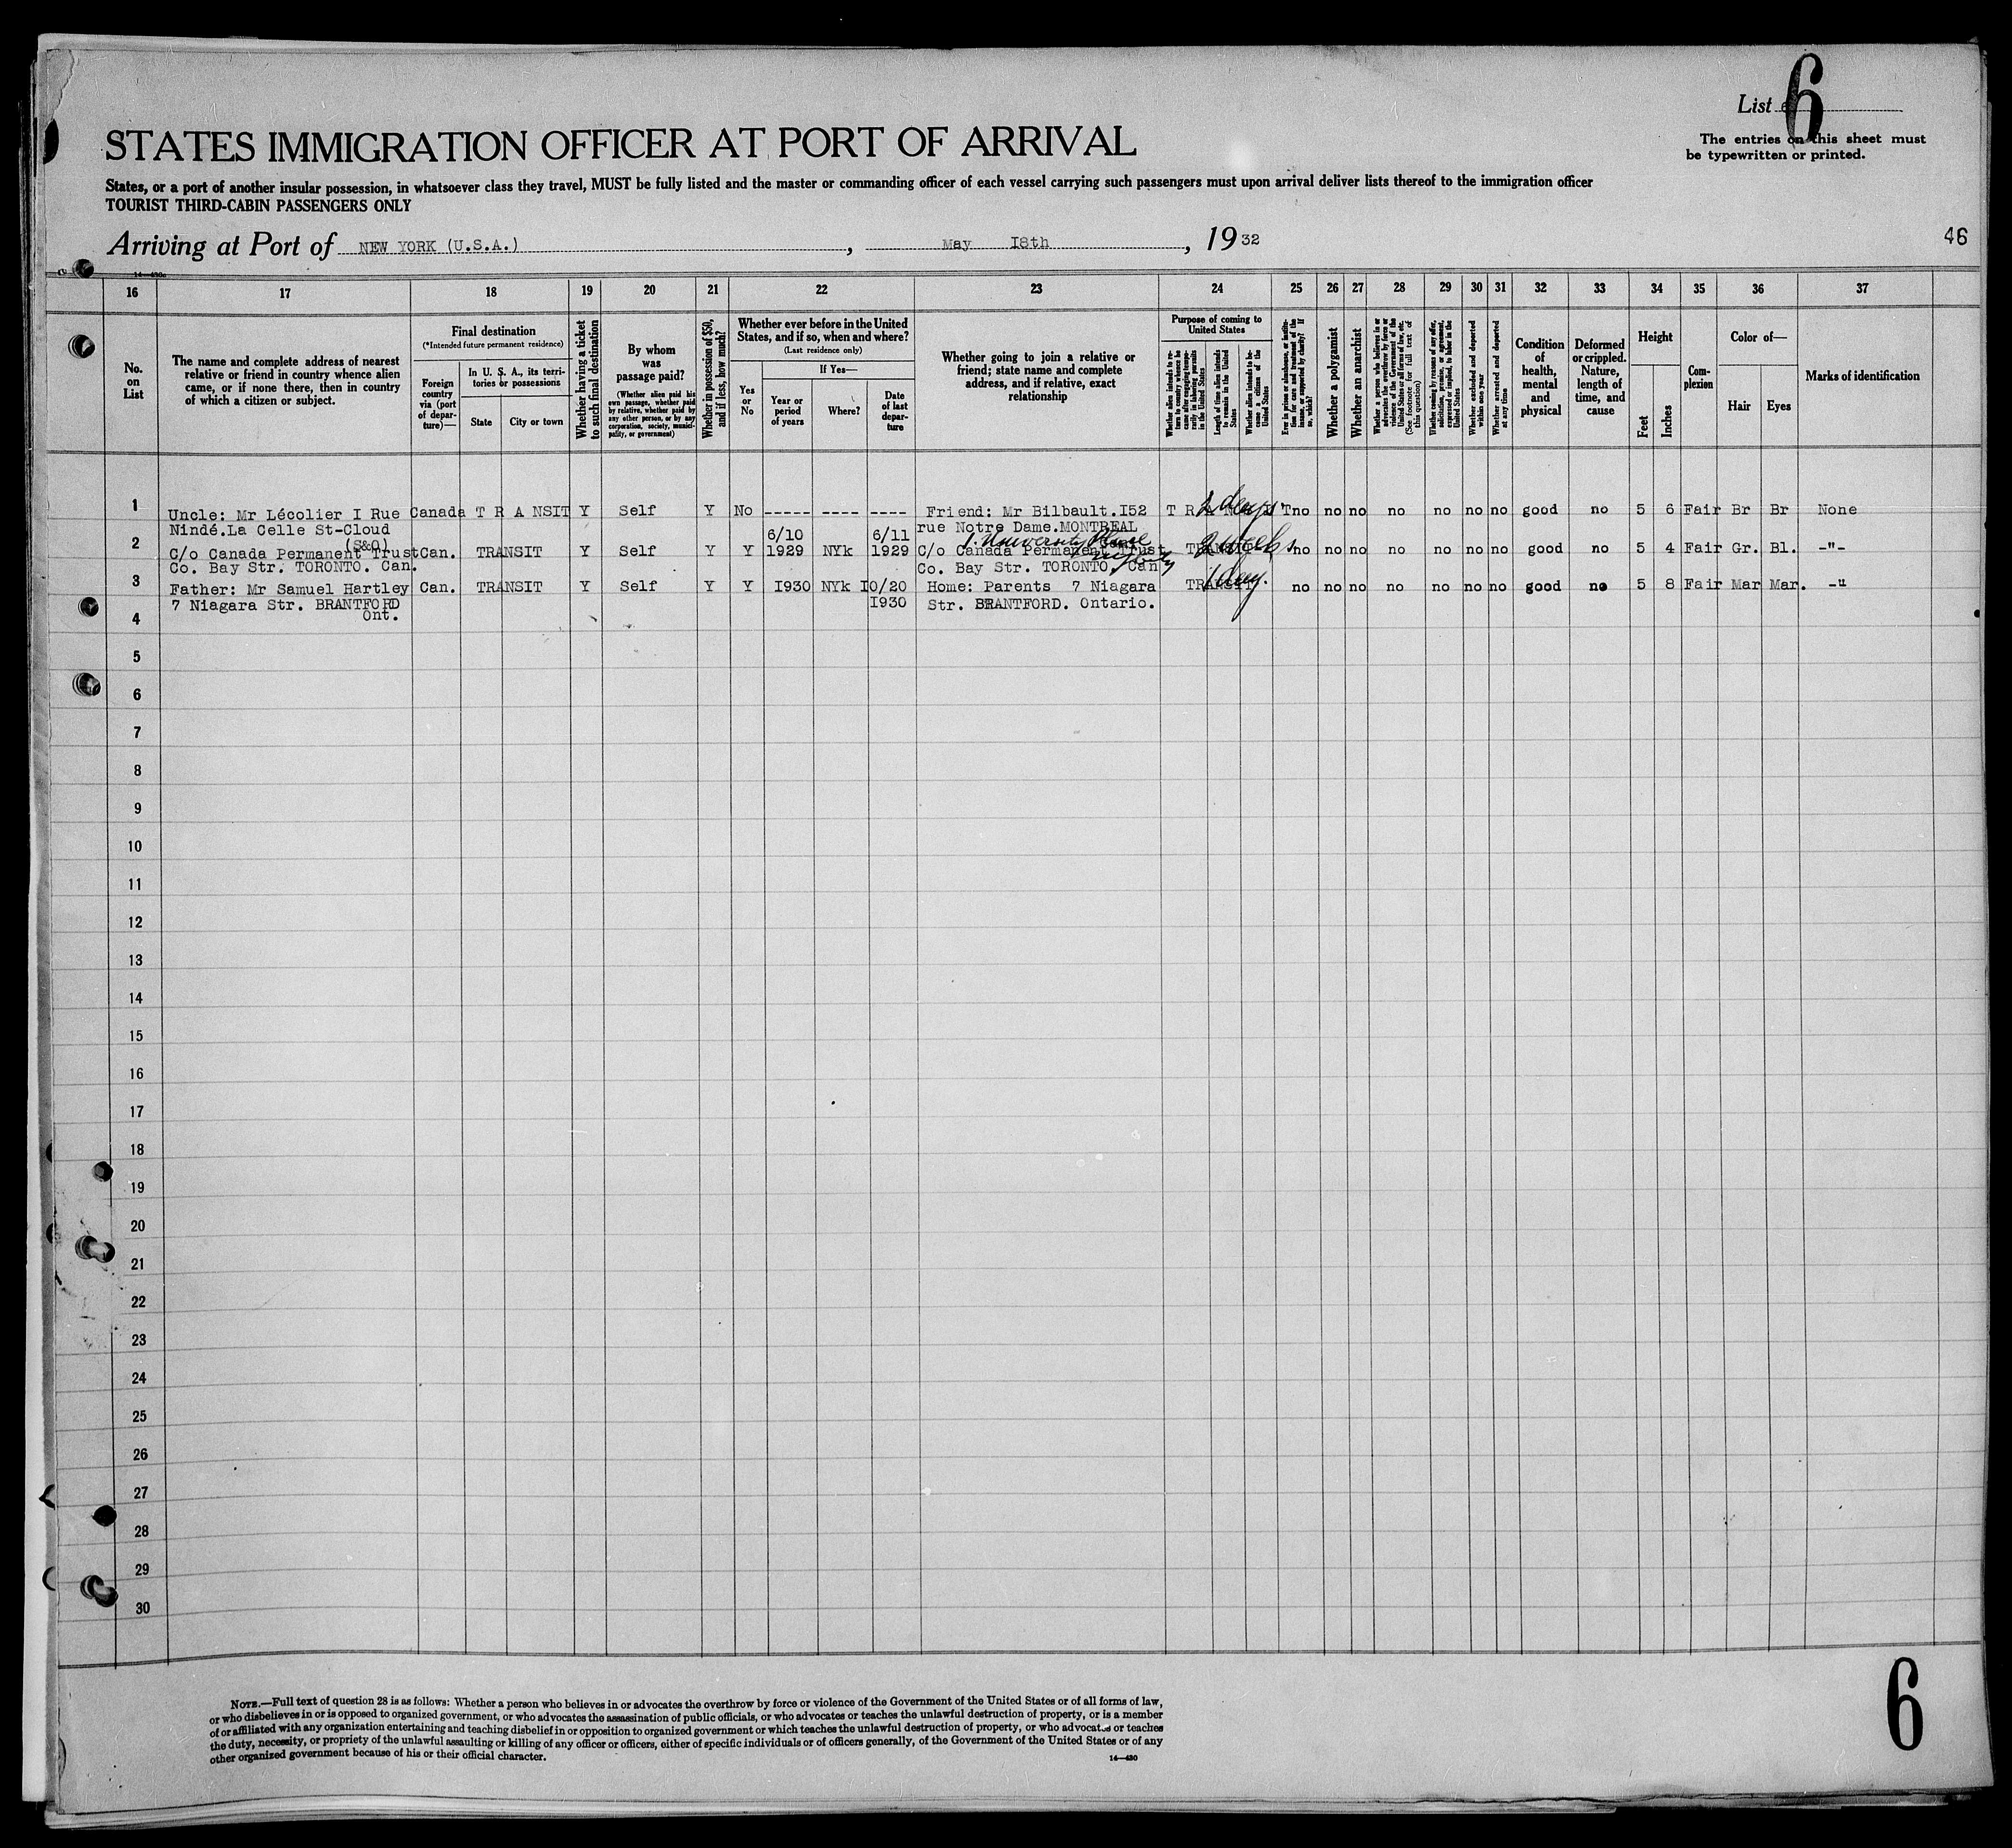 List 6
The entries on this sheet must
be typewritten or printed.
STATES IMMIGRATION OFFICER AT PORT OF ARRIVAL
States, or a port of another insular possession, in whatsoever class they travel, MUST be fully listed and the master or commanding officer of each vessel carrying such passengers must upon arrival deliver lists thereof to the immigration officer
TOURIST THIRD-CABIN PASSENGERS ONLY
Arriving at Port of NEW YORK (U.S.A.), May I8th, 1932
46
16 17 18 19 20 21 22 23 24 25 26 27 28 29 30 31 32 33 34 35 36 37
No. on List
The name and complete address of nearest
relative or friend in country whence alien
came, or if none there, then in country
of which a citizen or subject.
Final destination
(*Intended future permanent residence)
Foreign country via (port of departure)—
In U. S. A., its territories or possessions
State
City or town
Whether having a ticket to such final destination
By whom was passage paid?
(Whether alien paid his own passage, whether paid by relative, whether paid by any other person, or by any corporation, society, municipality, or government)
Whether in possession of $50, and if less, how much?
Whether ever before in the United
States, and if so, when and where?
(Last residence only)
Yes or No
If Yes—
Year or period of years
Where?
Date of last departure
Whether going to join a relative or
friend; state name and complete
address, and if relative, exact
relationship
Purpose of coming to United States
Whether alien intends to return to country whence he came after engaging temporarily in laboring pursuits in the United States
Length of time alien intends to remain in the United States
Whether alien intends to become a citizen of the United States
Ever in prison or almshouse, or institution for care and treatment of the insane, or supported by charity? If so, which?
Whether a polygamist
Whether an anarchist
Whether a person who believes in or advocates the overthrow by force or violence of the Government of the United States or all forms of law, etc. (See footnote for full text of this question)
Whether coming by reason of any offer, solicitation, promise, or agreement, expressed or implied, to labor in the United States
Whether excluded and deported within one year
Whether arrested and deported at any time
Condition of health, mental and physical
Deformed or crippled. Nature, length of time, and cause
Height
Feet
Inches
Complexion
Color of—
Hair
Eyes
Marks of identification
1 Uncle: Mr Lécolier I Rue Canada T R A NSIT Y Self Y No ----- ---- ---- Friend: Mr Bilbault.I52 2 days no no no no no no no good no 5 6 Fair Br Br None
Nindé.La Celle St-Cloud rue Notre Dame.MONTREAL
(S&O) 6/10 6/11 1. University Place
2 C/o Canada Permanent Trust Can. TRANSIT Y Self Y Y 1929 NYk 1929 C/o Canada Permanent Trust TRANSIT 2 weeks no no no no no no no good no 5 4 Fair Gr. Bl. -"-
Co. Bay Str. TORONTO. Can. Co. Bay Str. TORONTO. Can
3 Father: Mr Samuel Hartley Can. TRANSIT Y Self Y Y I930 NYk I0/20 Home: Parents 7 Niagara TRANSIT 1 day. no no no no no no no good no 5 8 Fair Mar Mar. -"
7 Niagara Str. BRANTFORD I930 Str. BRANTFORD. Ontario.
Ont.
4
5
6
7
8
9
10
11
12
13
14
15
16
17
18
19
20
21
22
23
24
25
26
27
28
29
30
NOTE.—Full text of question 28 is as follows: Whether a person who believes in or advocates the overthrow by force or violence of the Government of the United States or of all forms of law,
or who disbelieves in or is opposed to organized government, or who advocates the assassination of public officials, or who advocates or teaches the unlawful destruction of property, or is a member
of or affiliated with any organization entertaining and teaching disbelief in or opposition to organized government or which teaches the unlawful destruction of property, or who advocates or teaches
the duty, necessity, or propriety of the unlawful assaulting or killing of any officer or officers, either of specific individuals or of officers generally, of the Government of the United States or of any
other organized government because of his or their official character.
14—430
6